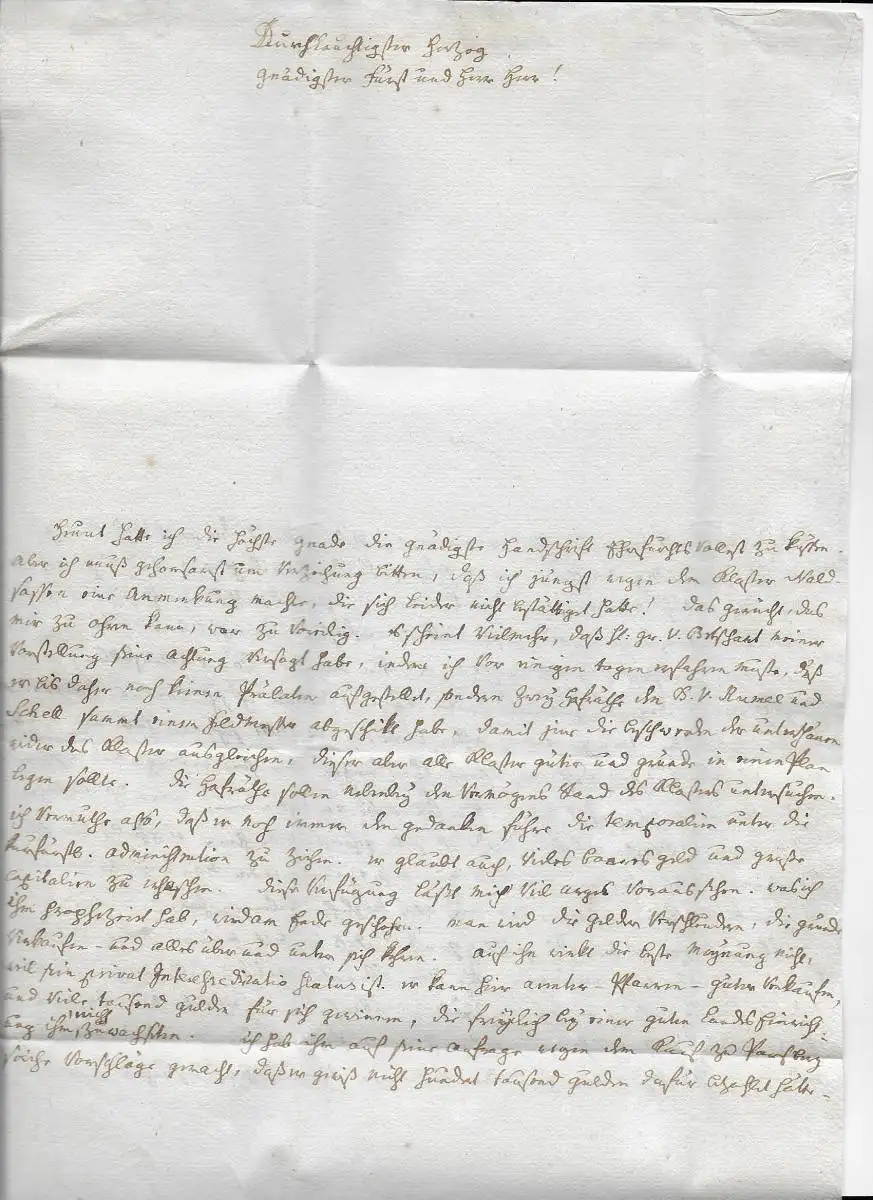 Durchlauchtigster Herzog
gnädigster Fürst und Herr Herr!
Heunt hatte ich die höchste gnade die gnädigste Handschrift Ehrfurchtsvollest zu küssen.
Aber ich muß gehorsamst um Verzeihung bitten, daß ich jüngst wegen dem Kloster Wald-
sassen eine Anmerkung machte, die sich leider nicht bestättiget hatte! Das gerücht, das
mir zu ohren kam, war zu voreilig. Es scheint vielmehr, daß H: gr. v. Betschart meiner
Vorstellung seine Achtung versagt habe, indeme ich vor einigen tagen erfahren mußte, daß
er bis daher noch keinen Prälaten aufgestellt, sondern zwey Hofräthe den B. v. Rumel und
Schell sammt einem Feldmesser abgeschikt habe, damit jene die beschwerden der unterthanen
wider das Kloster ausgleichen, dieser aber alle Kloster güter und gründe in einen Plan
legen sollte. die Hofräthe sollen nebenbey den Vermögens stand des Klosters untersuchen.
ich vermuthe also, daß er noch immer den gedanken führe die temporalien unter die
kurfürstl. administration zu ziehen. er glaubt auch, vieles baares geld und große
capitalien zu erhaschen. diese Verfügung läßt mich viel arges voraussehen. was ich
ihm prophezeiet hab, wird am Ende geschehen. man wird die gelder verschlenden, die gründe
verkaufen - und alles über und unter sich kehren. auch ihn wirkt die beste Meynung nicht,
weil sein privat Interesse die ratio status ist. er kann hier ämter - Pfarren - güter verkaufen,
und viele tausend gulden für sich gewinnen, die freylich bey einer guten Landseinrich-
tung ihm nicht zuwachsten. ich hab ihm auf seine anfrage wegen dem Kauf zu Parsberg
solche Vorschläge gemacht, daß er gewiß nicht hundert tausend gulden dafür bezahlet hätte -